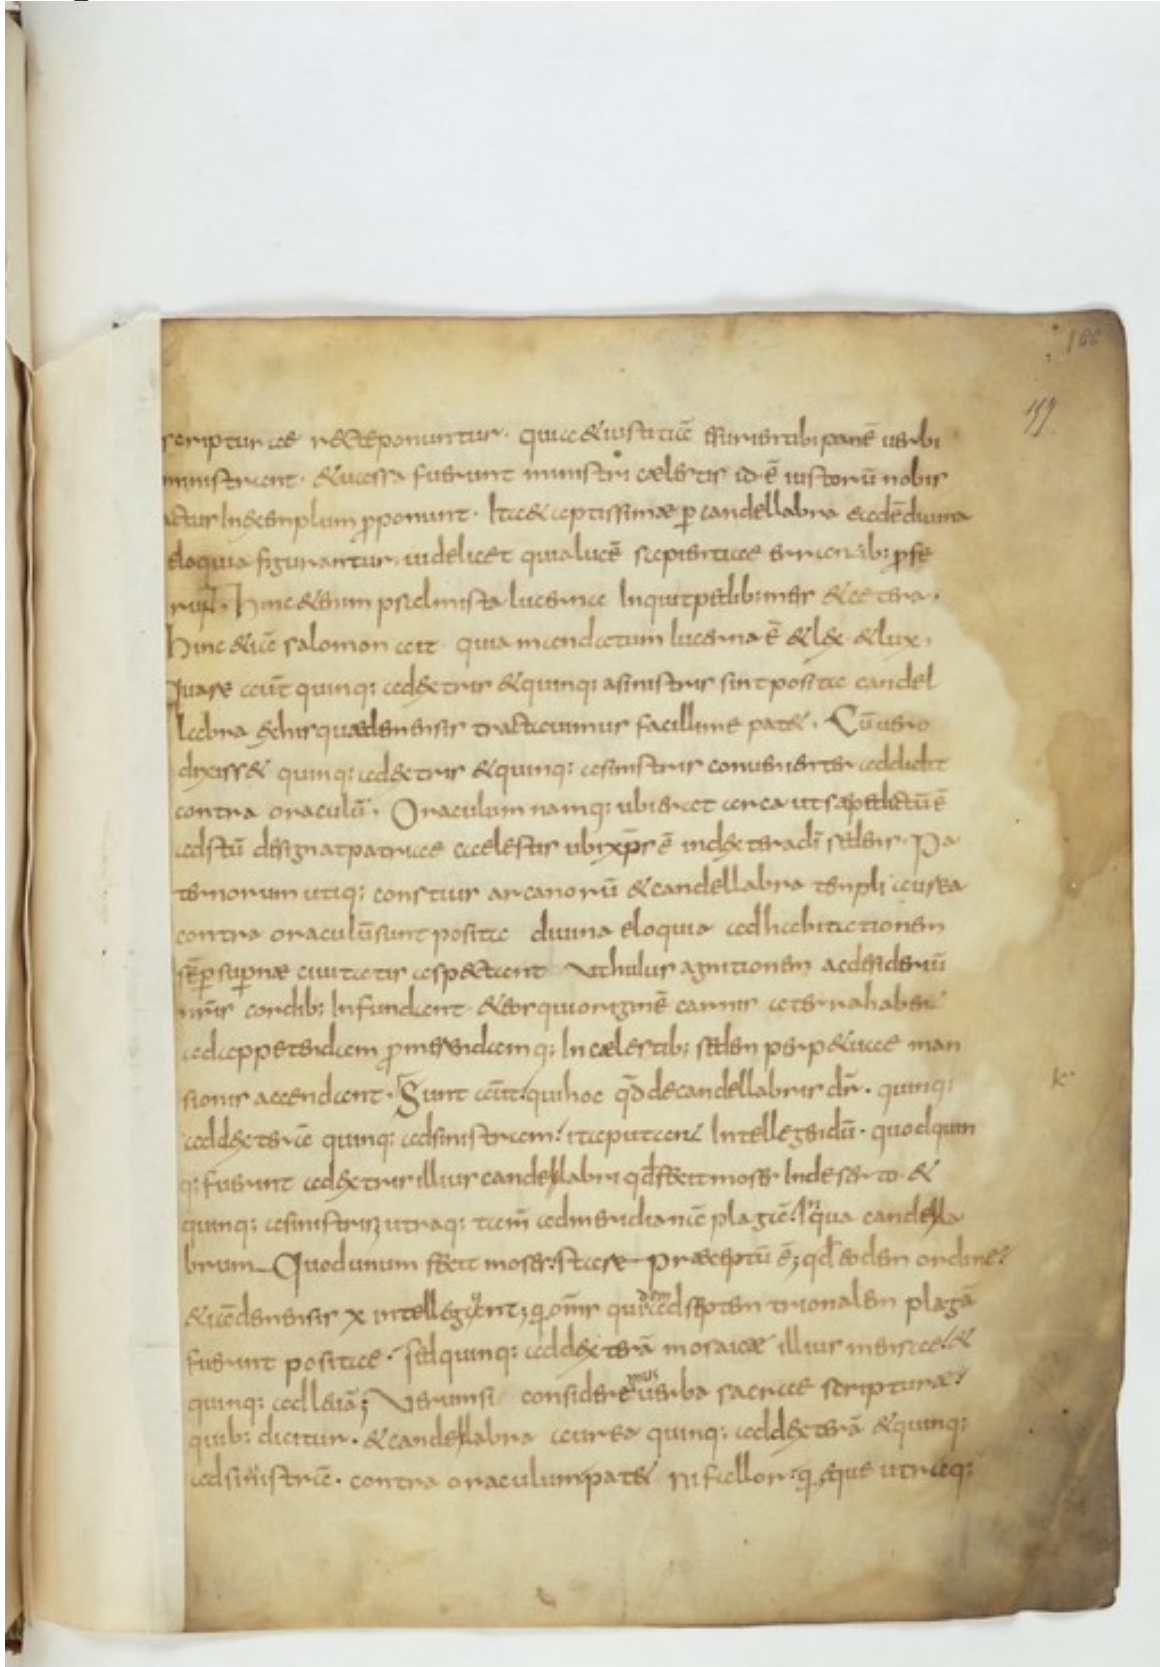 166
159
scripturae recte ponuntur. quia & iustitiae esurientibus panē uerbi
ministrant. & uasa fuerunt ministri caelestis id ē iustorū nobis
actus In exemplum p̄ponunt. Itaq; aptissimae p candellabra eadē diuina
eloquia figurantur. uidelicet quia lucē sapientiae errantib; p̄fe
runt. Hinc & enim psalmista lucerna Inquit pedib; meis & cetera.
Hinc & iā salomon ait. quia mandatum lucerna ē & lex & lux.
Quare aūt quinq; a dextris & quinq; a sinistris sint posita candel
labra ex his quae de mensis tractauimus facillime pat&. Cū uero
dixiss& quinq; a dextris & quinq; a sinistris conuenienter addidit
contra oraculū. Oraculum namq; ubi erat arca ut saepe dictū ē
adstū designat patriae caelestis ubi xp̄s ē in dextera dī sedens. Pa
ternorum utiq; conscius arcanorū & candellabra templi aurea
contra oraculū sunt posita diuina eloquia ad habitationem
sēp supnae ciuitatis aspectant Vt huius agnitionem ac desideriū
nr̄is cordib; Infundant. & eos qui originē carnis a terra habent
ad appetendam p̄merendamq; In caelestib; sedem perp&uae man
sionis accendant. Sunt aūt qui hoc qd̄ de candellabris dr̄. quinq;
ad dexterā quinq; ad sinistram. ita putent Intellegendū. quod quin
q; fuerint a dextris illius candellabri qd̄ fecit moses In deserto. &
quinq; a sinistris utraq; tam̄ ad meridianā plagā. In qua candella
brum Quod unum fecit moses. stare praeceptū ē; qd̄ eodem ordine
& iā de mensis x intellegunt; q̄ om̄s quidem ad septemtrionalem plagā
fuerint positae. sed quinq; ad dexterā mosaicae illius mensae. &
quinq; ad leuā; Verum si consideremus uerba sacrae scripturae.
quib; dicitur. & candellabra aurea quinq; ad dexterā & quinq;
ad sinistrā. contra oraculum. pat& ni fallor. q̄ eque utraq;
k